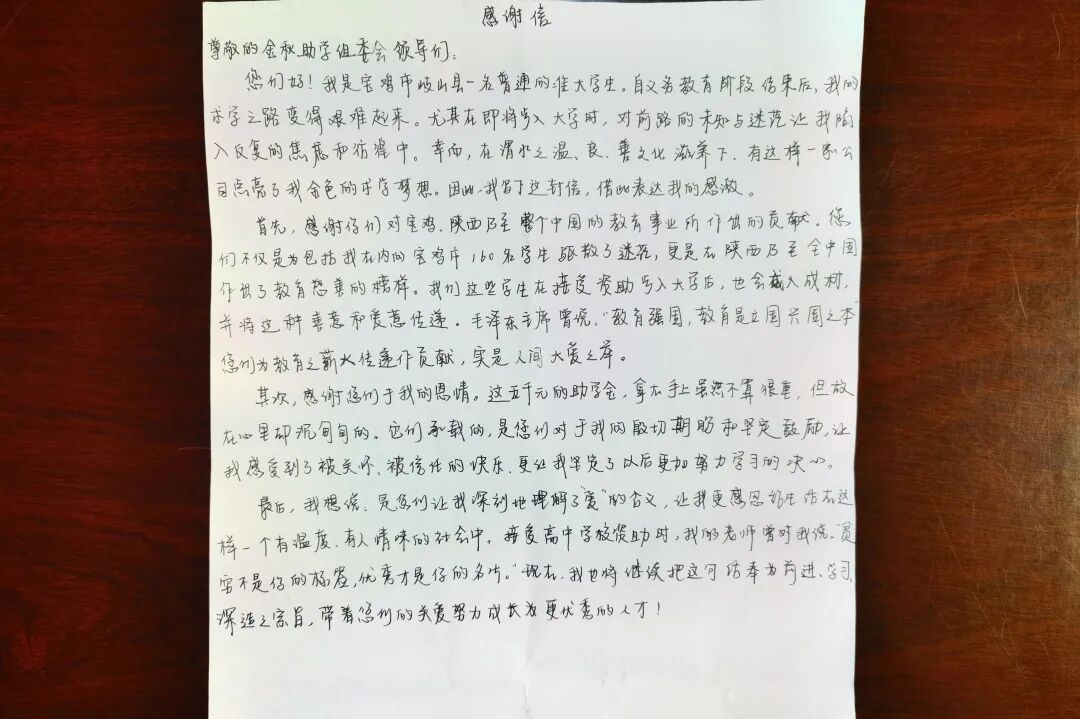 感谢信
尊敬的金秋助学组委会领导们:
您们好!我是宝鸡市岐山县一名普通的准大学生。自义务教育阶段结束后,我的
求学之路变得艰难起来。尤其在即将步入大学时,对前路的未知与迷茫让我陷
入反复的焦虑和彷徨中。幸而,在渭水之温、良、善文化滋养下,有这样一家公
司点亮了我金色的求学梦想。因此,我写下这封信,借此表达我的感激。
首先,感谢你们对宝鸡、陕西乃至整个中国的教育事业所作出的贡献。您
们不仅是为包括我在内的宝鸡市160名学生驱散了迷茫,更是在陕西乃至全中国
作出了教育慈善的榜样。我们这些学生在接受资助步入大学后,也会成人成材,
并将这种善意和爱意传递。毛泽东主席曾说,“教育强国,教育是立国兴国之本”
您们为教育之薪火传递作贡献,实是人间大爱之举。
其次,感谢您们于我的恩情。这五千元的助学金,拿在手上虽然不算很重,但放
在心里却沉甸甸的。它们承载的,是您们对于我的殷切期盼和坚定鼓励,让
我感受到了被关怀、被信任的快乐、更让我坚定了以后更加努力学习的决心。
最后,我想说,是您们让我深刻地理解了“爱”的含义,让我更感恩能生活在这
样一个有温度、有人情味的社会中。接受高中学校资助时,我的老师曾对我说,“贫
穷不是你的标签,优秀才是你的名片。”现在,我也将继续把这句话奉为前进、学习、
深造之宗旨,带着您们的关爱努力成长为更优秀的人才!